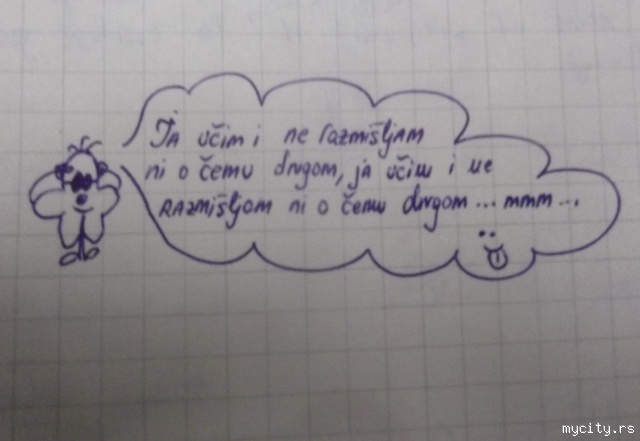 Ja učim i ne razmišljam
ni o čemu drugom, ja učim i ne
RAZMIŠLJAM ni o čemu drugom ... mmm ...
mycity.rs